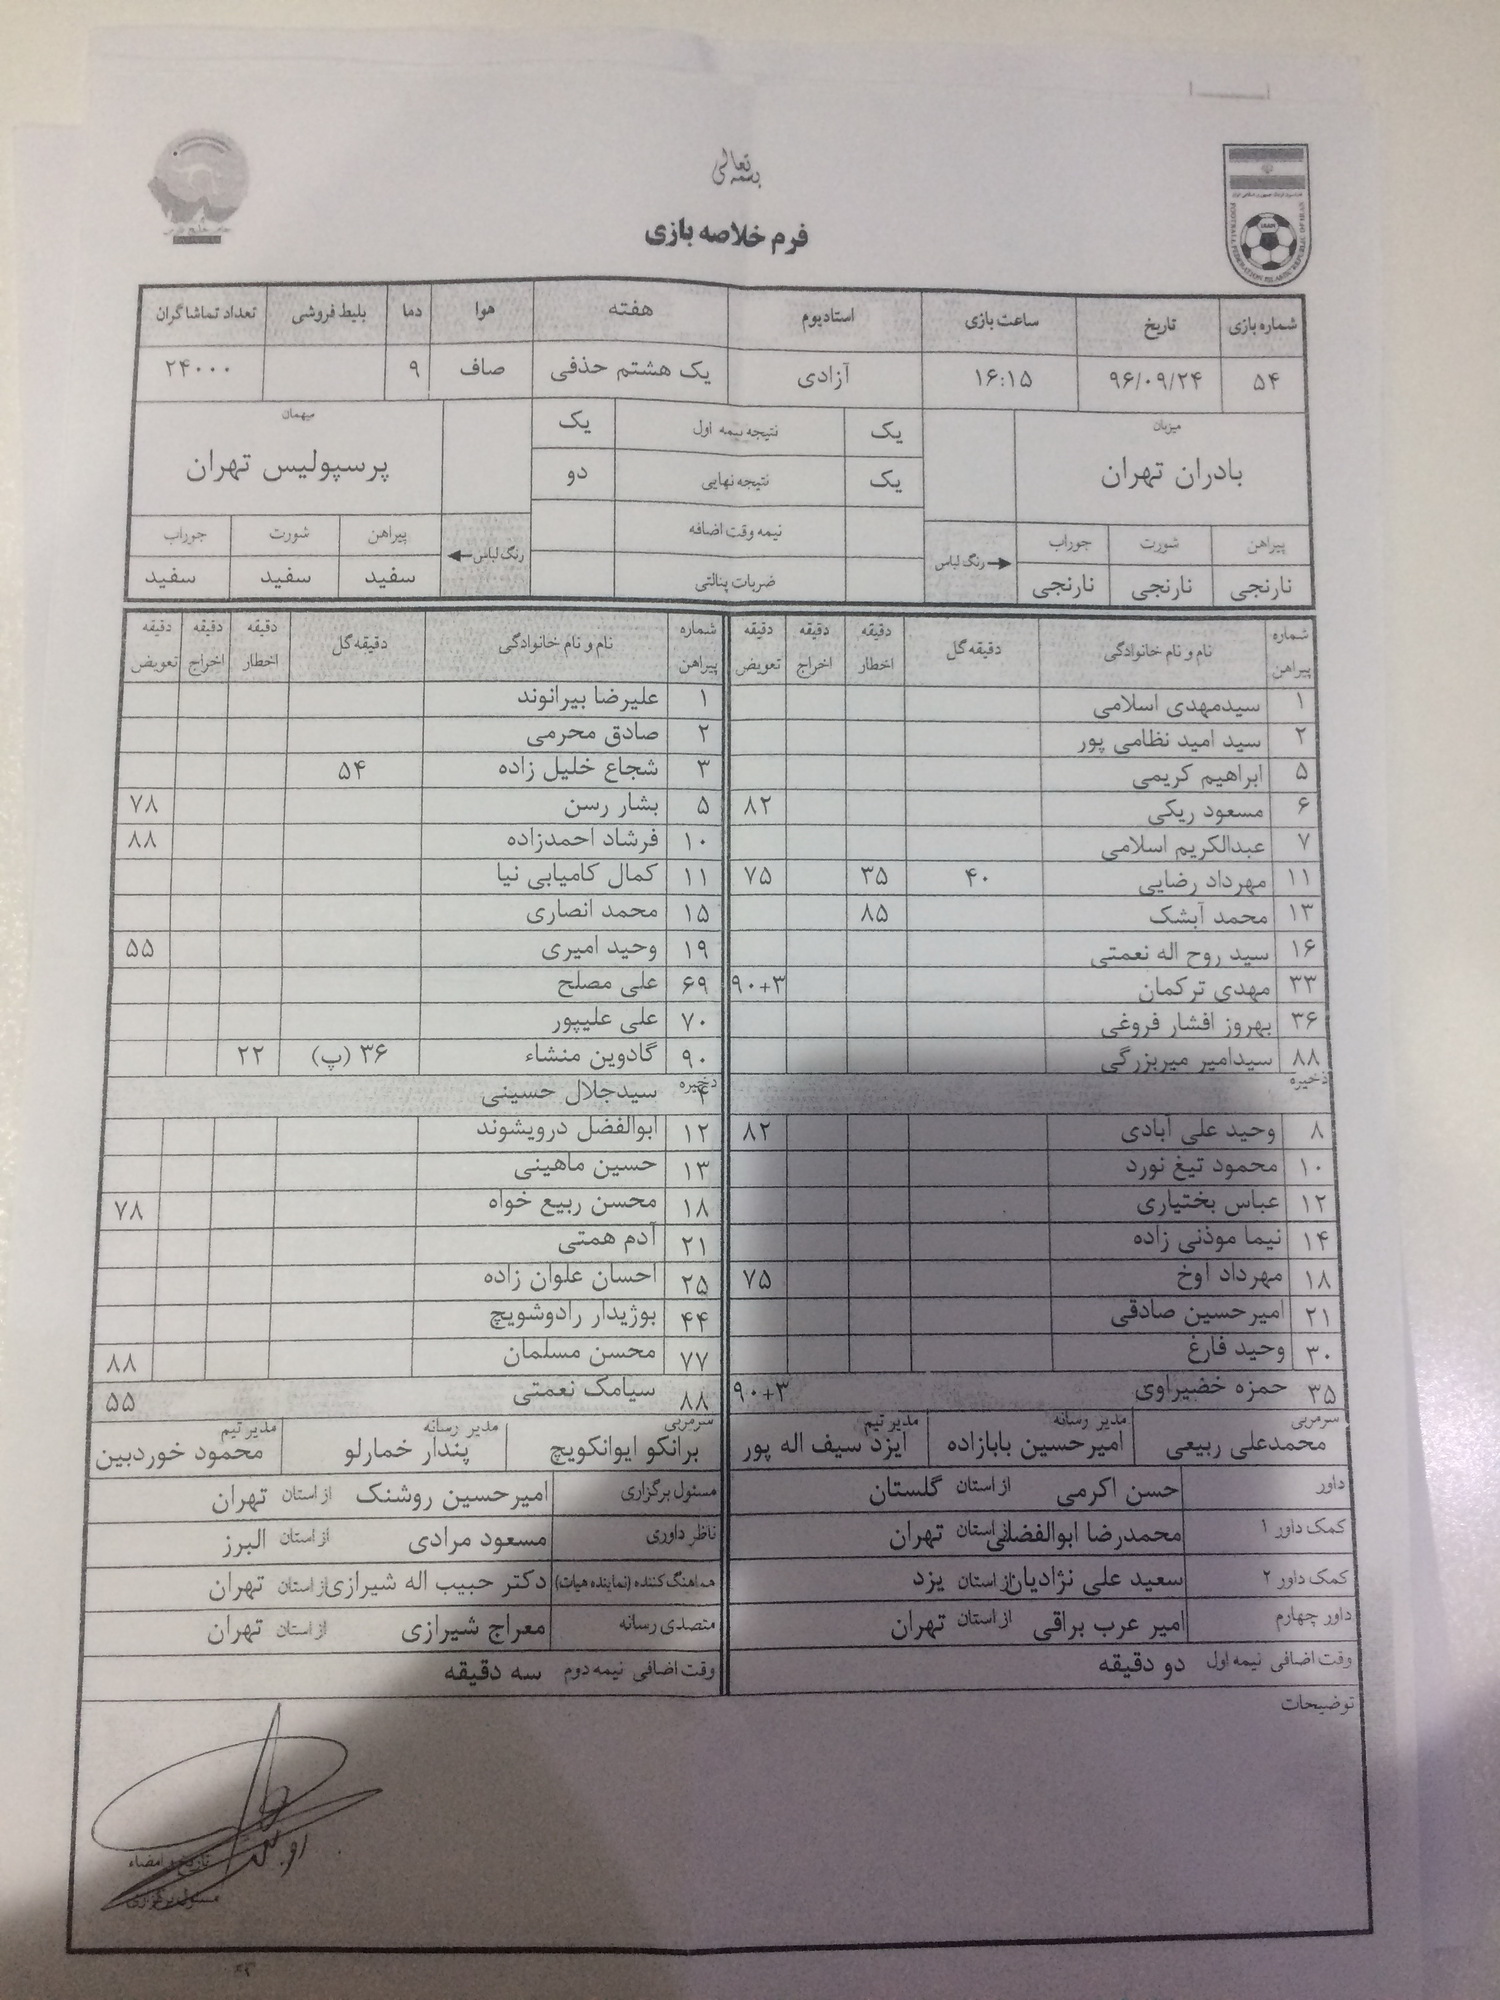 بسمه تعالی
فرم خلاصه بازی
FOOTBALL FEDERATION ISLAMIC REPUBLIC OF IRAN
شماره بازی تاریخ ساعت بازی استادیوم هفته هوا دما بلیط فروشی تعداد تماشاگران
۵۴ ۹۶/۰۹/۲۴ ۱۶:۱۵ آزادی یک هشتم حذفی صاف ۹ ۲۴۰۰۰
میزبان میهمان
بادران تهران پرسپولیس تهران
یک نتیجه نیمه اول یک
یک نتیجه نهایی دو
نیمه وقت اضافه
ضربات پنالتی
پیراهن شورت جوراب رنگ لباس رنگ لباس پیراهن شورت جوراب
نارنجی نارنجی نارنجی سفید سفید سفید
شماره پیراهن نام و نام خانوادگی دقیقه گل دقیقه اخطار دقیقه اخراج دقیقه تعویض شماره پیراهن نام و نام خانوادگی دقیقه گل دقیقه اخطار دقیقه اخراج دقیقه تعویض
۱ سیدمهدی اسلامی ۱ علیرضا بیرانوند
۲ سید امید نظامی پور ۲ صادق محرمی
۵ ابراهیم کریمی ۳ شجاع خلیل زاده ۵۴
۶ مسعود ریکی ۸۲ ۵ بشار رسن ۷۸
۷ عبدالکریم اسلامی ۱۰ فرشاد احمدزاده ۸۸
۱۱ مهرداد رضایی ۴۰ ۳۵ ۷۵ ۱۱ کمال کامیابی نیا
۱۳ محمد آبشک ۸۵ ۱۵ محمد انصاری
۱۶ سید روح اله نعمتی ۱۹ وحید امیری ۵۵
۳۳ مهدی ترکمان ۹۰+۳ ۶۹ علی مصلح
۳۶ بهروز افشار فروغی ۷۰ علی علیپور
۸۸ سیدامیر میربزرگی ۹۰ گادوین منشاء ۳۶ (پ) ۲۲
ذخیره ذخیره ۴ سیدجلال حسینی
۸ وحید علی آبادی ۸۲ ۱۲ ابوالفضل درویشوند
۱۰ محمود تیغ نورد ۱۳ حسین ماهینی
۱۲ عباس بختیاری ۱۸ محسن ربیع خواه ۷۸
۱۴ نیما موذنی زاده ۲۱ آدم همتی
۱۸ مهرداد اوخ ۷۵ ۲۵ احسان علوان زاده
۲۱ امیرحسین صادقی ۴۴ بوژیدار رادوشویچ
۳۰ وحید فارغ ۷۷ محسن مسلمان ۸۸
۳۵ حمزه خضیراوی ۹۰+۳ ۸۸ سیامک نعمتی ۵۵
سرمربی مدیر رسانه مدیر تیم سرمربی مدیر رسانه مدیر تیم
محمدعلی ربیعی امیرحسین بابازاده ایزد سیف اله پور برانکو ایوانکویچ پندار خمارلو محمود خوردبین
داور حسن اکرمی از استان گلستان مسئول برگزاری امیرحسین روشنک از استان تهران
کمک داور ۱ محمدرضا ابوالفضلی از استان تهران ناظر داوری مسعود مرادی از استان البرز
کمک داور ۲ سعید علی نژادیان از استان یزد هماهنگ کننده (نماینده هیات) دکتر حبیب اله شیرازی از استان تهران
داور چهارم امیر عرب براقی از استان تهران متصدی رسانه معراج شیرازی از استان تهران
وقت اضافی نیمه اول دو دقیقه وقت اضافی نیمه دوم سه دقیقه
توضیحات
تاریخ و امضاء
مسئول برگزاری